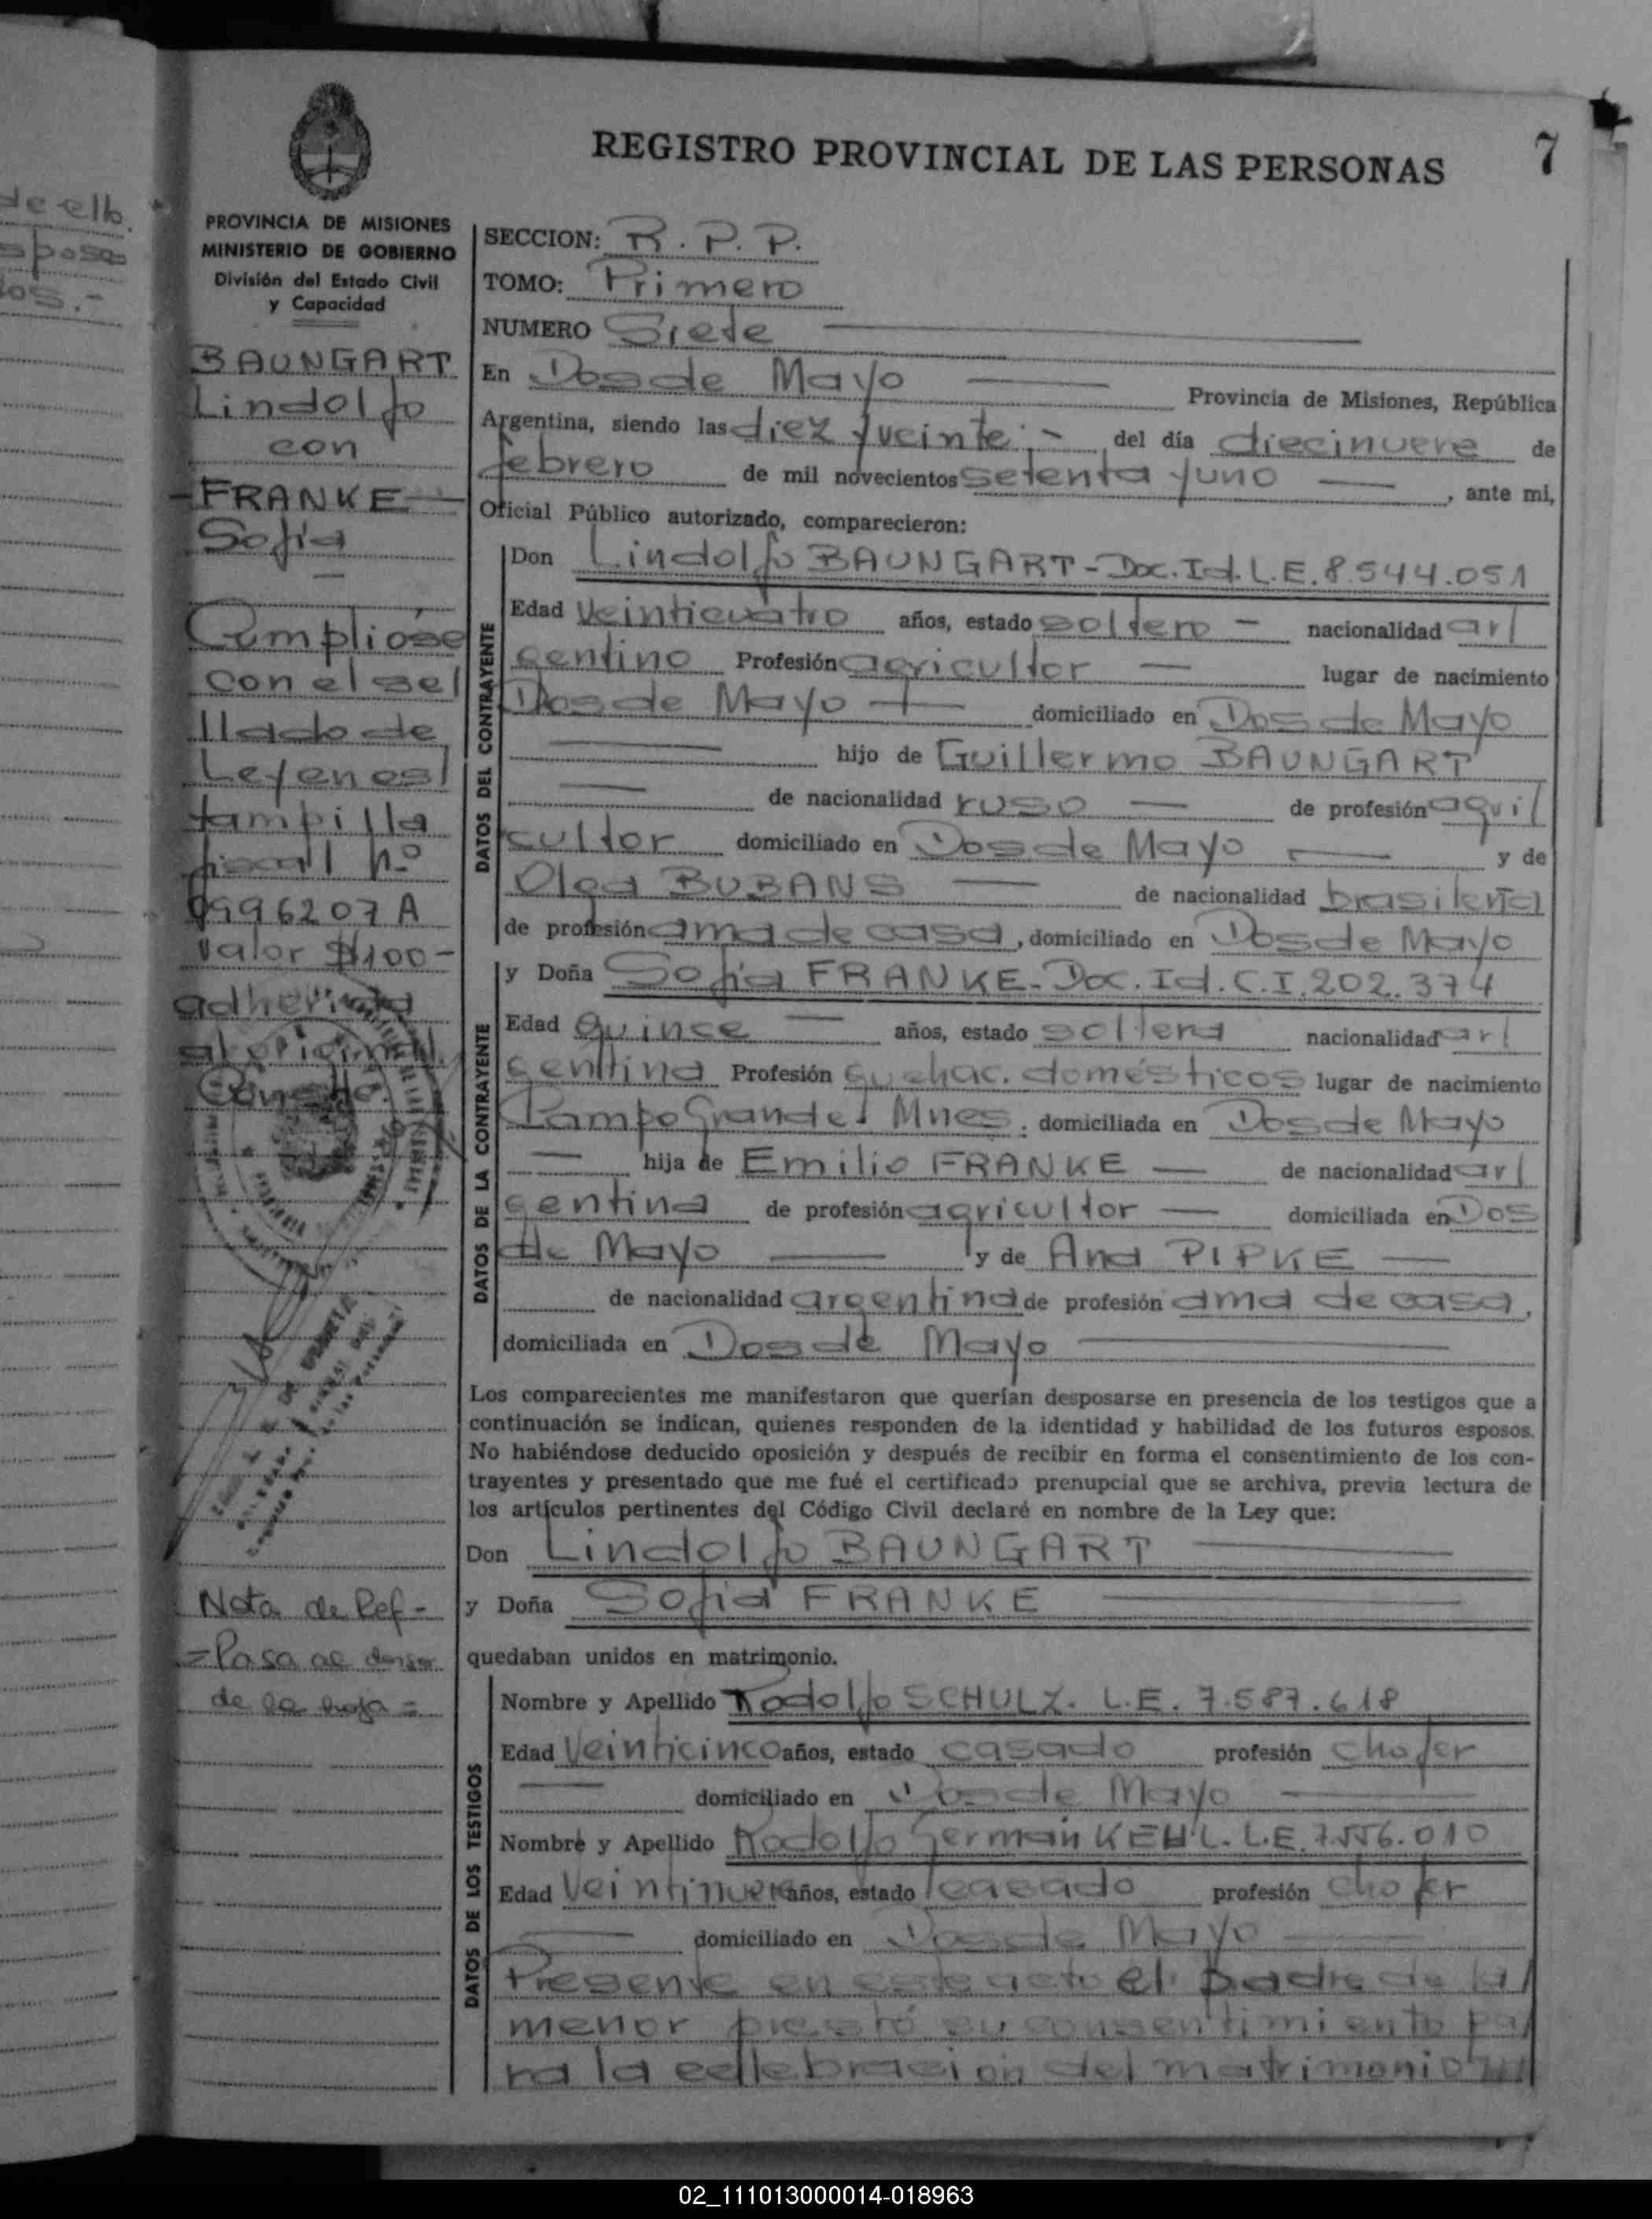 de ello.
esposa
dos.-
PROVINCIA DE MISIONES
MINISTERIO DE GOBIERNO
División del Estado Civil
y Capacidad
BAUNGART
Lindolfo
con
-FRANKE-
Sofia
Cumplióse
con el se/
llado de
Ley en es/
tampilla
fiscal nº
9996207 A
Valor $100-
adherida
al original.
Conste.
Nota de Ref-
=Pasa al dorso
de la hoja=
REGISTRO PROVINCIAL DE LAS PERSONAS 7
SECCION: R. P. P.
TOMO: Primero
NUMERO Siete
En Dos de Mayo — Provincia de Misiones, República
Argentina, siendo las diez y veinte - del día diecinueve de
febrero de mil novecientos setenta y uno —, ante mi,
Oficial Público autorizado, comparecieron:
DATOS DEL CONTRAYENTE
Don Lindolfo BAUNGART - Doc. Id. L.E. 8.544.051
Edad veinticuatro años, estado soltero - nacionalidad ar/
gentino Profesión agricultor — lugar de nacimiento
Dos de Mayo — domiciliado en Dos de Mayo
— hijo de Guillermo BAUNGART
— de nacionalidad ruso — de profesión agui/
cultor domiciliado en Dos de Mayo — y de
Olga BUBANS — de nacionalidad brasileña
de profesión ama de casa, domiciliado en Dos de Mayo
DATOS DE LA CONTRAYENTE
y Doña Sofia FRANKE - Doc. Id. C.I. 202.374
Edad quince — años, estado soltera nacionalidad ar/
gentina Profesión quehac. domésticos lugar de nacimiento
Campo Grande. Mnes. domiciliada en Dos de Mayo
— hija de Emilio FRANKE — de nacionalidad ar/
gentina de profesión agricultor — domiciliada en Dos
de Mayo — y de Ana PIPKE —
de nacionalidad argentina de profesión ama de casa,
domiciliada en Dos de Mayo —
Los comparecientes me manifestaron que querían desposarse en presencia de los testigos que a
continuación se indican, quienes responden de la identidad y habilidad de los futuros esposos.
No habiéndose deducido oposición y después de recibir en forma el consentimiento de los con-
trayentes y presentado que me fué el certificado prenupcial que se archiva, previa lectura de
los artículos pertinentes del Código Civil declaré en nombre de la Ley que:
Don Lindolfo BAUNGART —
y Doña Sofia FRANKE —
quedaban unidos en matrimonio.
DATOS DE LOS TESTIGOS
Nombre y Apellido Rodolfo SCHULZ. L.E. 7.587.618
Edad Veinticinco años, estado casado profesión chofer
— domiciliado en Dos de Mayo —
Nombre y Apellido Rodolfo German KEHL. L.E. 7.556.010
Edad Veintinueve años, estado casado profesión chofer
— domiciliado en Dos de Mayo —
Presente en este acto el padre de la/
menor prestó su consentimiento pa/
ra la cellebracion del matrimonio
02_111013000014-018963